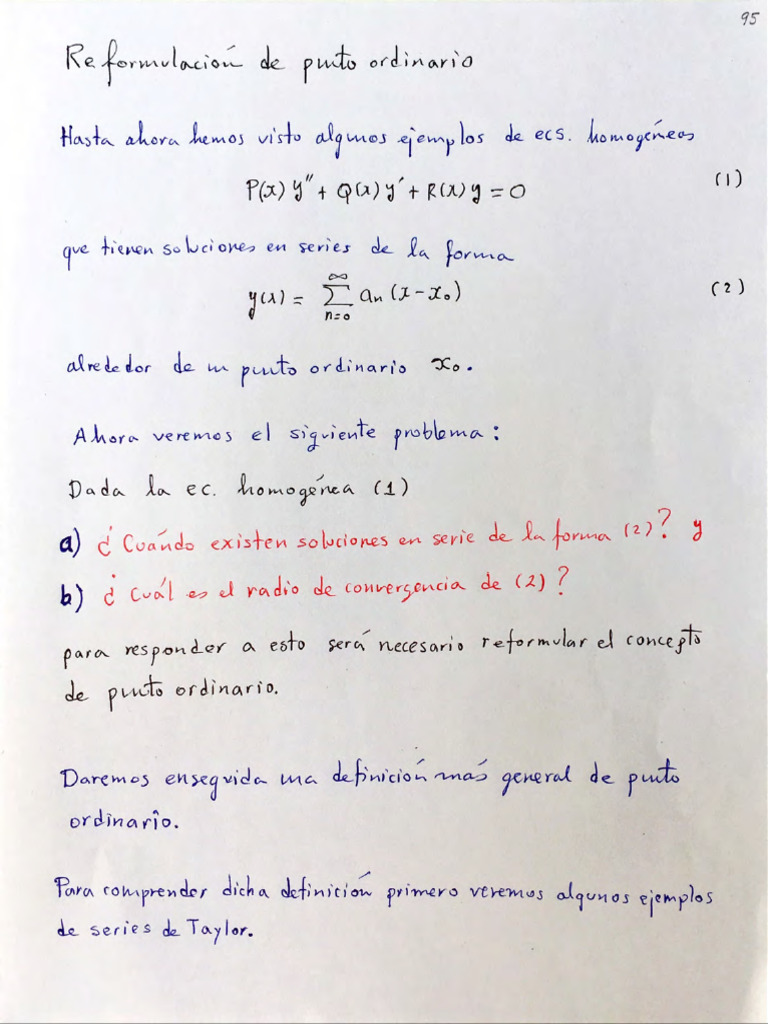 95
Reformulación de punto ordinario
Hasta ahora hemos visto algunos ejemplos de ecs. homogéneas
P(x) y'' + Q(x) y' + R(x) y = 0 (1)
que tienen soluciones en series de la forma
y(x) = ∑_{n=0}^{∞} a_n (x - x_0) (2)
alrededor de un punto ordinario x_0.
Ahora veremos el siguiente problema:
Dada la ec. homogénea (1)
a) ¿Cuándo existen soluciones en serie de la forma (2)? y
b) ¿Cuál es el radio de convergencia de (2)?
para responder a esto será necesario reformular el concepto
de punto ordinario.
Daremos enseguida una definición más general de punto
ordinario.
Para comprender dicha definición primero veremos algunos ejemplos
de series de Taylor.